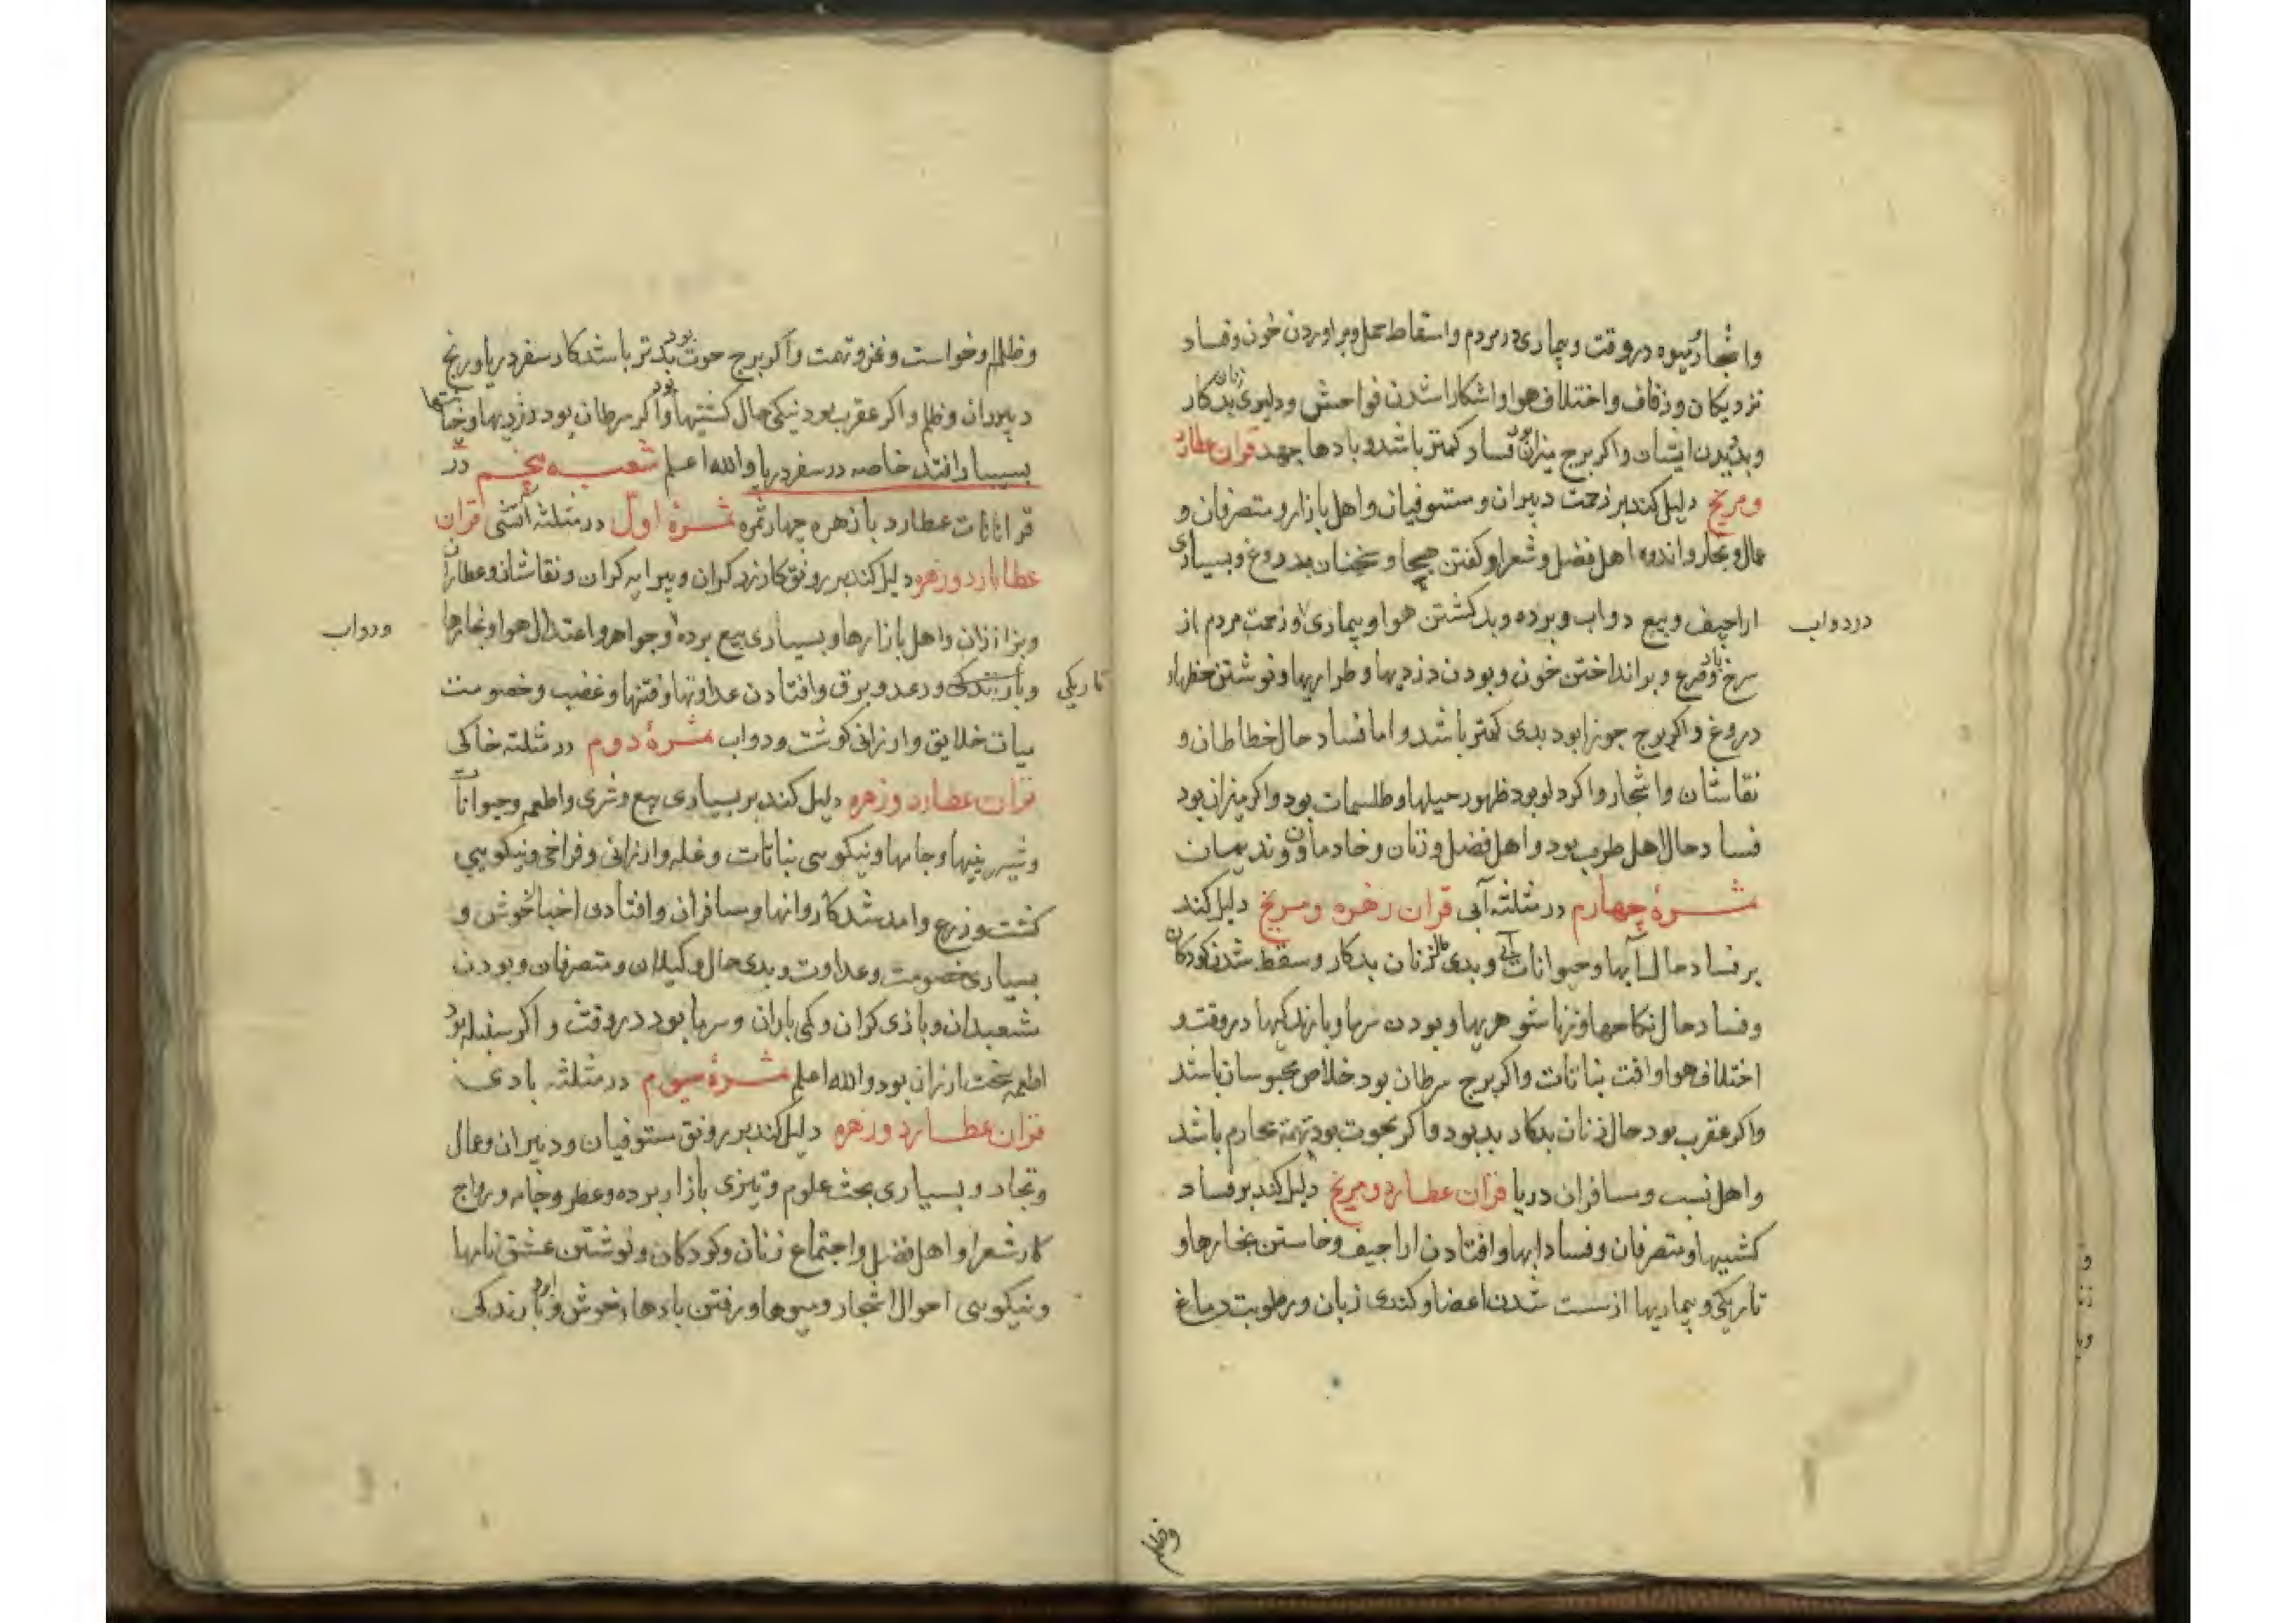 واشجار میوه در وقت و بیماری در مردم و اسقاط حمل و براوردن خون و فساد
نزدیکان و زفاف و اختلاف هوا و اشکارا شدن فواحش و دلیری زنان بدکار
و بدیدن ایشان واکر برج میزان بود فساد کمتر باشد و بادها جهد قران عطارد
و مریخ دلیل کند بر زحمت دبیران و مستوفیان و اهل بازار و متصرفان و
عمال و تجار و اندوه اهل فضل و شعرا و کفتن هجا و سخنان بدروغ و بسیاری
اراجیف و بیع دواب و برده و بد کشتن هوا و بیماری و زحمت مردم از
در دواب
سرخ باد و قرع و برانداختن خون و بودن دزدیها و طراریها و نوشتن خطهاء
دروغ واکر برج جوزا بود بدی کمتر باشد و اما فساد حال خطاطان و
نقاشان و اشجار واکر دلو بود ظهور حیلها و طلسمات بود واکر میزان بود
فساد حال اهل طرب بود و اهل فضل و زنان و خادمان و ندیمان
ثمرهٔ چهارم در مثلثه آبی قران زهره و مریخ دلیل کند
بر فساد حال آبها و حیوانات آبی و بدی زنان بدکار و سقط شدن کودکان
و فساد حال نکاحها و زناشوهریها و بودن سرما و بارندکیها در وقت و
اختلاف هوا و افت نباتات واکر برج سرطان بود خلاص محبوسان باشد
واکر عقرب بود حال زنان بدکار بد بود و اکر بحوت بود تهمة محارم باشد
و اهل نسب و مسافران دریا قران عطارد و مریخ دلیل کند بر فساد
کشتیها و متصرفان و فساد ابها و افتادن اراجیف و خاستن بخارها و
تاریکی و بیماریها از سست شدن اعضا و کندی زبان و رطوبت دماغ
وظلم
وظلم و خواست و غز و تهمت واکر برج حوت بود بدتر باشد کار سفر دریا و رنج
دبیران وظلم واکر عقرب بود نیکی حال کشتیها بود واکر سرطان بود دزدیها و خیانتها
بسیار افتد خاصه در سفر دریا والله اعلم شعبه پنجم در
قرانات عطارد با زهره چهار ثمره ثمرهٔ اول در مثلثه آتشی قران
عطارد و زهره دلیل کند بر رونق کار زرکران و پیرایه کران و نقاشان و عطاران
و بزازان و اهل بازارها و بسیاری بیع برده و جواهر و اعتدال هوا و بخارها
ودواب
تاریکی
و بارندکی و رعد و برق و افتادن عداوتها و فتنها و غضب و خصومت
میان خلایق و ارزانی کوشت و دواب ثمرهٔ دوم در مثلثه خاکی
قران عطارد و زهره دلیل کند بر بسیاری بیع و شری و اطعمه و حیوانات
و شیرینیها و جامها و نیکویی نباتات و غله و ارزانی و فراخی و نیکویی
کشت و زرع و امد شد کاروانها و مسافران و افتادی اخبار خوش و
بسیاری خصومت و عداوت و بدی حال وکیلان و متصرفان و بودن
مشعبدان و بازی کران و کمی باران و سرما بود در وقت و اکر سنبله بود
اطعمه سخت ارزان بود والله اعلم ثمرهٔ سیوم در مثلثه بادی
قران عطارد و زهره دلیل کند بر رونق مستوفیان و دبیران و عمال
و تجار و بسیاری بحث علوم و تیزی بازار برده و عطر و جامه و رواج
کار شعرا و اهل فضل و اجتماع زنان و کودکان و نوشتن عشق نامها
و نیکویی احوال اشجار و میوها و رفتن بادهاء خوش و بارندکی